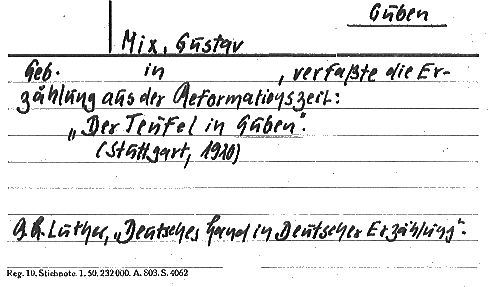 Guben
Mix, Gustav
Geb. in , verfaßte die Er-
zählung aus der Reformationszeit:
„Der Teufel in Guben".
(Stuttgart, 1910)
A. Luther, „Deutsches Land in Deutscher Erzählung".
Reg. 10. Stichnote. 1. 50. 232000. A. 803. S. 4062